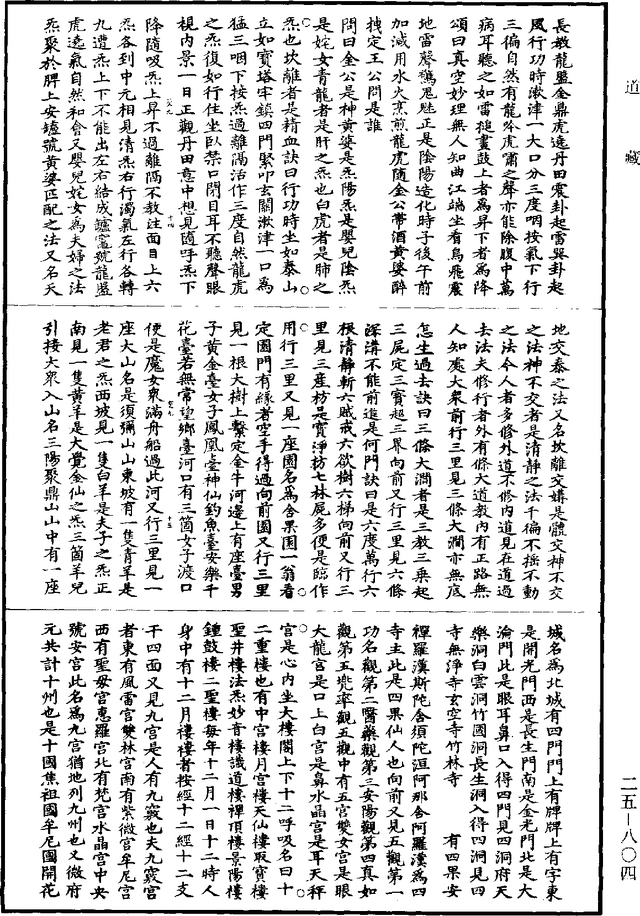 道藏
二五—八〇四
長敏龍盟金鼎虎遶丹田震卦起雷巽卦起
風行功時漱津一大口分三度咽按氣下行
三徧自然有龍吟虎嘯之聲亦能除腹中萬
病耳聽之如雷搥畫鼓上者為昇下者為降
頌曰真空妙理無人知曲江端坐看烏飛震
地雷聲驚鬼魅正是陰陽造化時子後午前
加減用水火烹煎龍虎隨金公帶酒黃婆醉
拽定王公問是誰
問曰金公是神黃婆是炁陽炁是嬰兒陰炁
是姹女青龍者是肝之炁也白虎者是肺之
炁也坎離者是精血訣曰行功時坐如泰山
立如寶塔牢鎮四門緊叩玄關漱津一口為
猛三咽下按炁過離隔活作三度自然龍虎
之炁復如行住坐臥禁口閉目耳不聽聲眼
視內景一日正觀丹田意中想見隨呼炁下
降隨吸炁上昇不過離隔不教注面目上六
炁各到中元相見清炁右行濁氣左行各轉
九遭炁上下不能出左右結成爐竈號龍盟
虎遶氣自然和會又嬰兒姹女為夫婦之法
炁聚於脾上安爐號黃婆匹配之法又名天
地交泰之法又名坎離交媾是體交神不交
之法神不交者是清靜之法千徧不搖不動
之法今人者多修外道不修內道見在道過
去法夫修行者外有條大道教內有正路無
人知處大衆前行三里見三條大澗亦無底
怎生過去訣曰三條大澗者是三教三乘起
三屍定三寶超三界向前又行三里見六條
深溝不能前進是何門訣曰是六度萬行六
根清靜斬六賊戒六欲樹六梯向前又行三
里見三座枋是寶淨枋七林屍多便是臨作
用行三里又見一座園名為含果園一翁看
定園門有緣者空手得過向前園又行三里
見一根大樹上繫定金牛河邊上有座臺男
子黃金臺女子鳳凰臺神仙釣魚臺安樂千
花臺若無常望鄉臺河口有三箇女子渡口
便是魔女衆滿舟船過此河又行三里見一
座大山名是須彌山山東坡有一隻青羊是
老君之炁西坡見一隻白羊是夫子之炁正
南見一隻黃羊是大覺金仙之炁三箇羊兒
引接大衆入山名三陽聚鼎山山中有一座
城名為北城有四門門上有牌牌上有字東
是開光門西是長生門南是金光門北是大
淪門此是眼耳鼻口入得四門見四洞府天
樂洞白雲洞竹園洞長生洞入得四洞見四
寺無淨寺玄空寺竹林寺　有四果安
禪羅漢斯陀含須陀洹阿那含阿羅漢為四
寺主此是四果仙人也向前又見五觀第一
功名觀第二醫藥觀第三安陽觀第四真如
觀第五兜率觀五觀中有五宮雙女宮是眼
大龍宮是口上白宮是鼻水晶宮是耳天秤
宮是心內坐大樓閣上下十二呼吸名曰十
二重樓也有中宮樓月宮樓天仙樓取寶樓
聖井樓法炁妙音樓識道樓禪頂樓景陽樓
鍾鼓樓二聖樓每年十二月一日十二時人
身中有十二月樓樓者按經十二經十二支
干四面又見九宮是人有九竅也夫九竅宮
者東有風雷宮雙林宮南有紫微宮牟尼宮
西有聖母宮惠羅宮北有梵宮水晶宮中央
號安宮此名為九宮猶地列九州也又微府
元共計十州也是十國焦祖國牟尼國開花